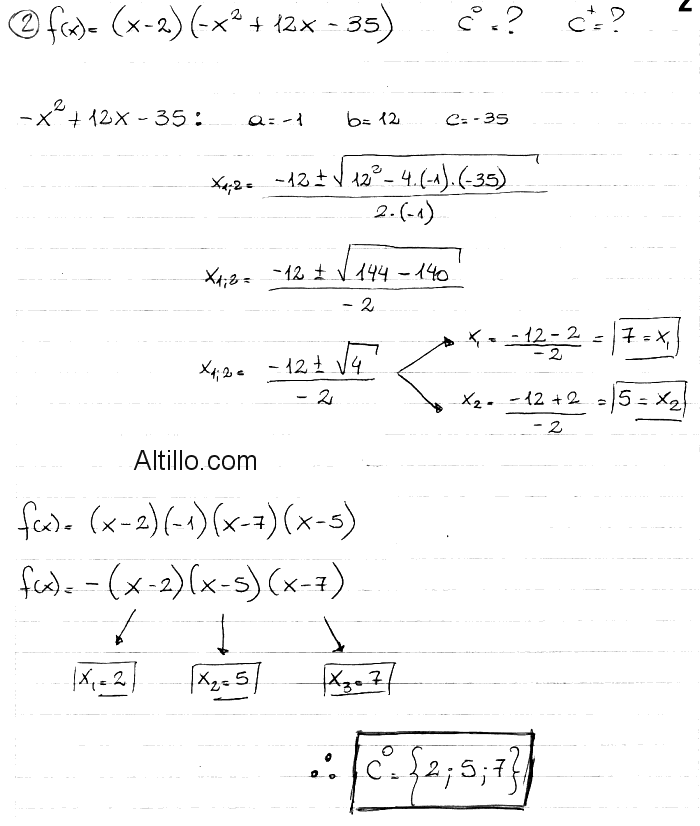 2
② f(x) = (x-2)(-x² + 12x - 35) C⁰ = ? C⁺ = ?
-x² + 12x - 35 : a = -1 b = 12 c = -35
x₁;₂ = (-12 ± √(12² - 4.(-1).(-35))) / (2.(-1))
x₁;₂ = (-12 ± √(144 - 140)) / (-2)
x₁;₂ = (-12 ± √4) / (-2)
x₁ = (-12 - 2) / (-2) = 7 = x₁
x₂ = (-12 + 2) / (-2) = 5 = x₂
Altillo.com
f(x) = (x-2)(-1)(x-7)(x-5)
f(x) = -(x-2)(x-5)(x-7)
x₁ = 2 x₂ = 5 x₃ = 7
∴ C⁰ = {2; 5; 7}